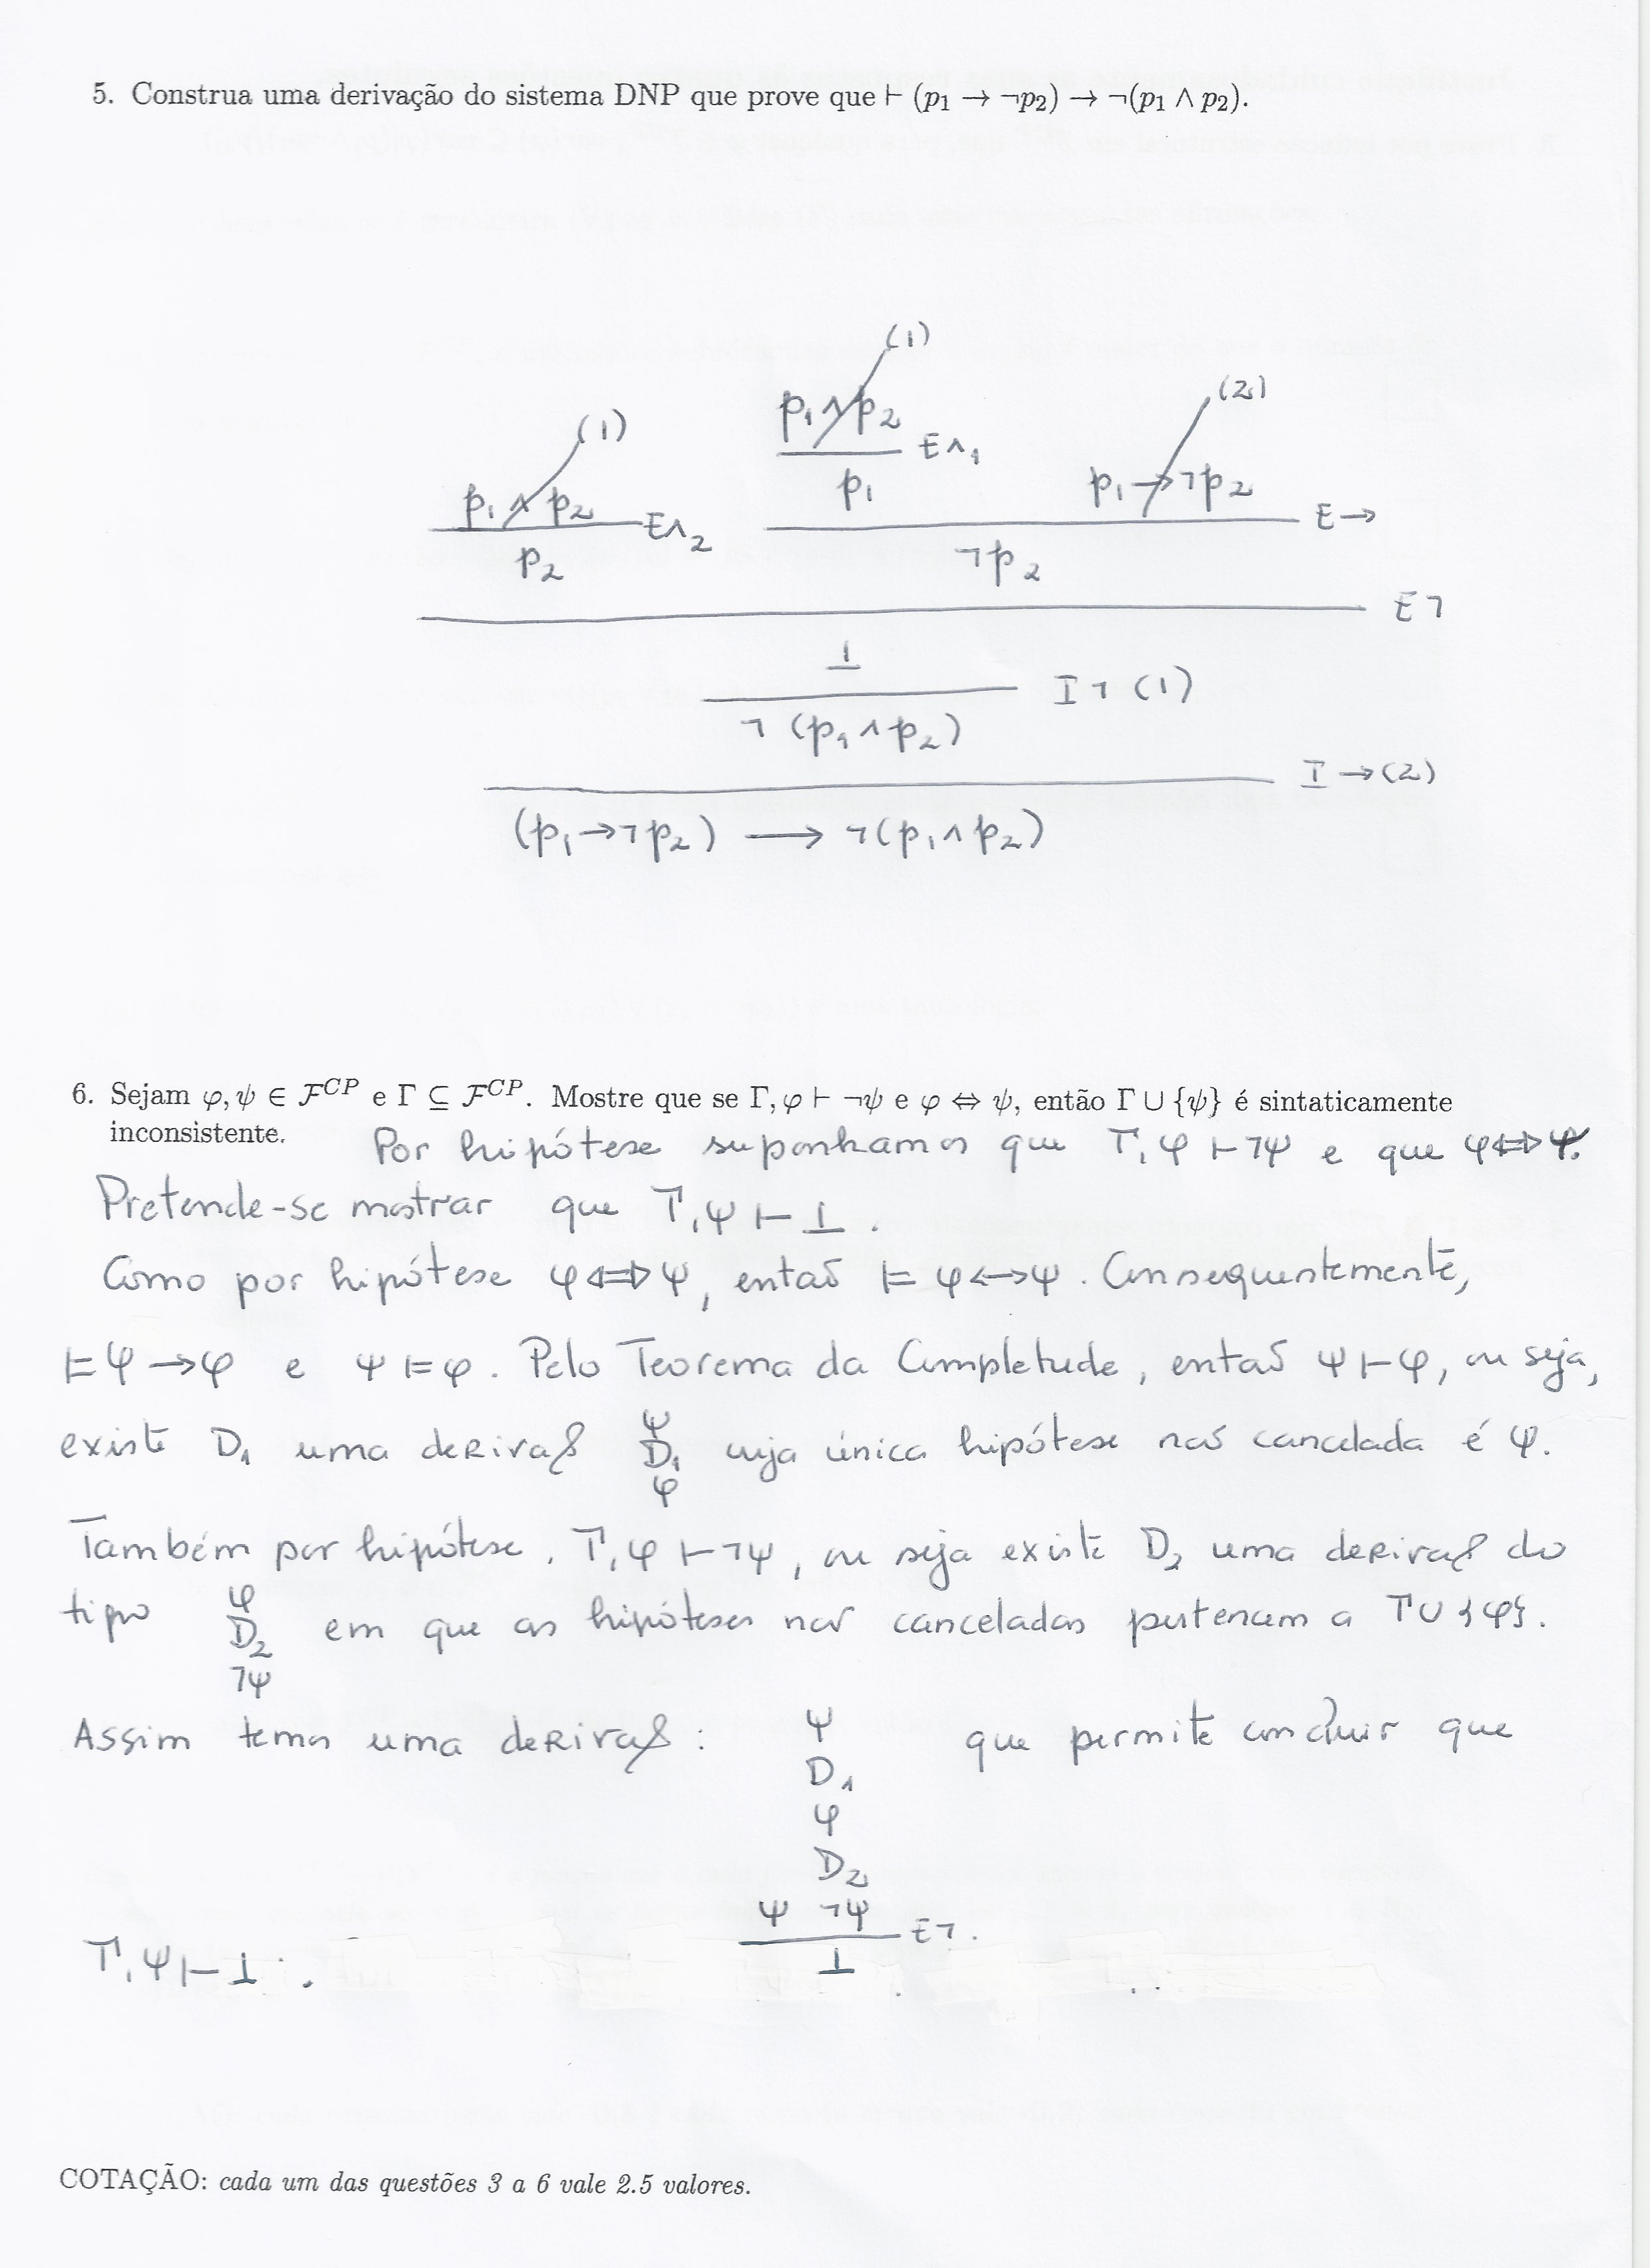 5. Construa uma derivação do sistema DNP que prove que ⊢ (p₁ → ¬p₂) → ¬(p₁ ∧ p₂).
(1)
(2)
(1)
p₁ ∧ p₂ E∧₁
p₁ ∧ p₂ E∧₂ p₁ p₁ → ¬p₂ E→
p₂ ¬p₂
E¬
⊥
I¬ (1)
¬ (p₁ ∧ p₂)
I → (2)
(p₁ → ¬p₂) → ¬(p₁ ∧ p₂)
6. Sejam φ, ψ ∈ 𝓕^CP e Γ ⊆ 𝓕^CP. Mostre que se Γ, φ ⊢ ¬ψ e φ ⇔ ψ, então Γ ∪ {ψ} é sintaticamente
inconsistente. Por hipótese suponhamos que Γ, φ ⊢ ¬ψ e que φ ⇔ ψ.
Pretende-se mostrar que Γ, ψ ⊢ ⊥.
Como por hipótese φ ⇔ ψ, então ⊨ φ ↔ ψ. Consequentemente,
⊨ ψ → φ e ψ ⊨ φ. Pelo Teorema da Completude, então ψ ⊢ φ, ou seja,
ψ
existe D₁ uma derivaç D₁ cuja única hipótese não cancelada é ψ.
φ
Também por hipótese, Γ, φ ⊢ ¬ψ, ou seja existe D₂ uma derivaç do
φ
tipo D₂ em que as hipóteses não canceladas pertencem a Γ ∪ {φ}.
¬ψ
Assim temos uma derivaç : ψ que permite concluir que
D₁
φ
D₂
ψ ¬ψ E¬.
Γ, ψ ⊢ ⊥. ⊥
COTAÇÃO: cada um das questões 3 a 6 vale 2.5 valores.